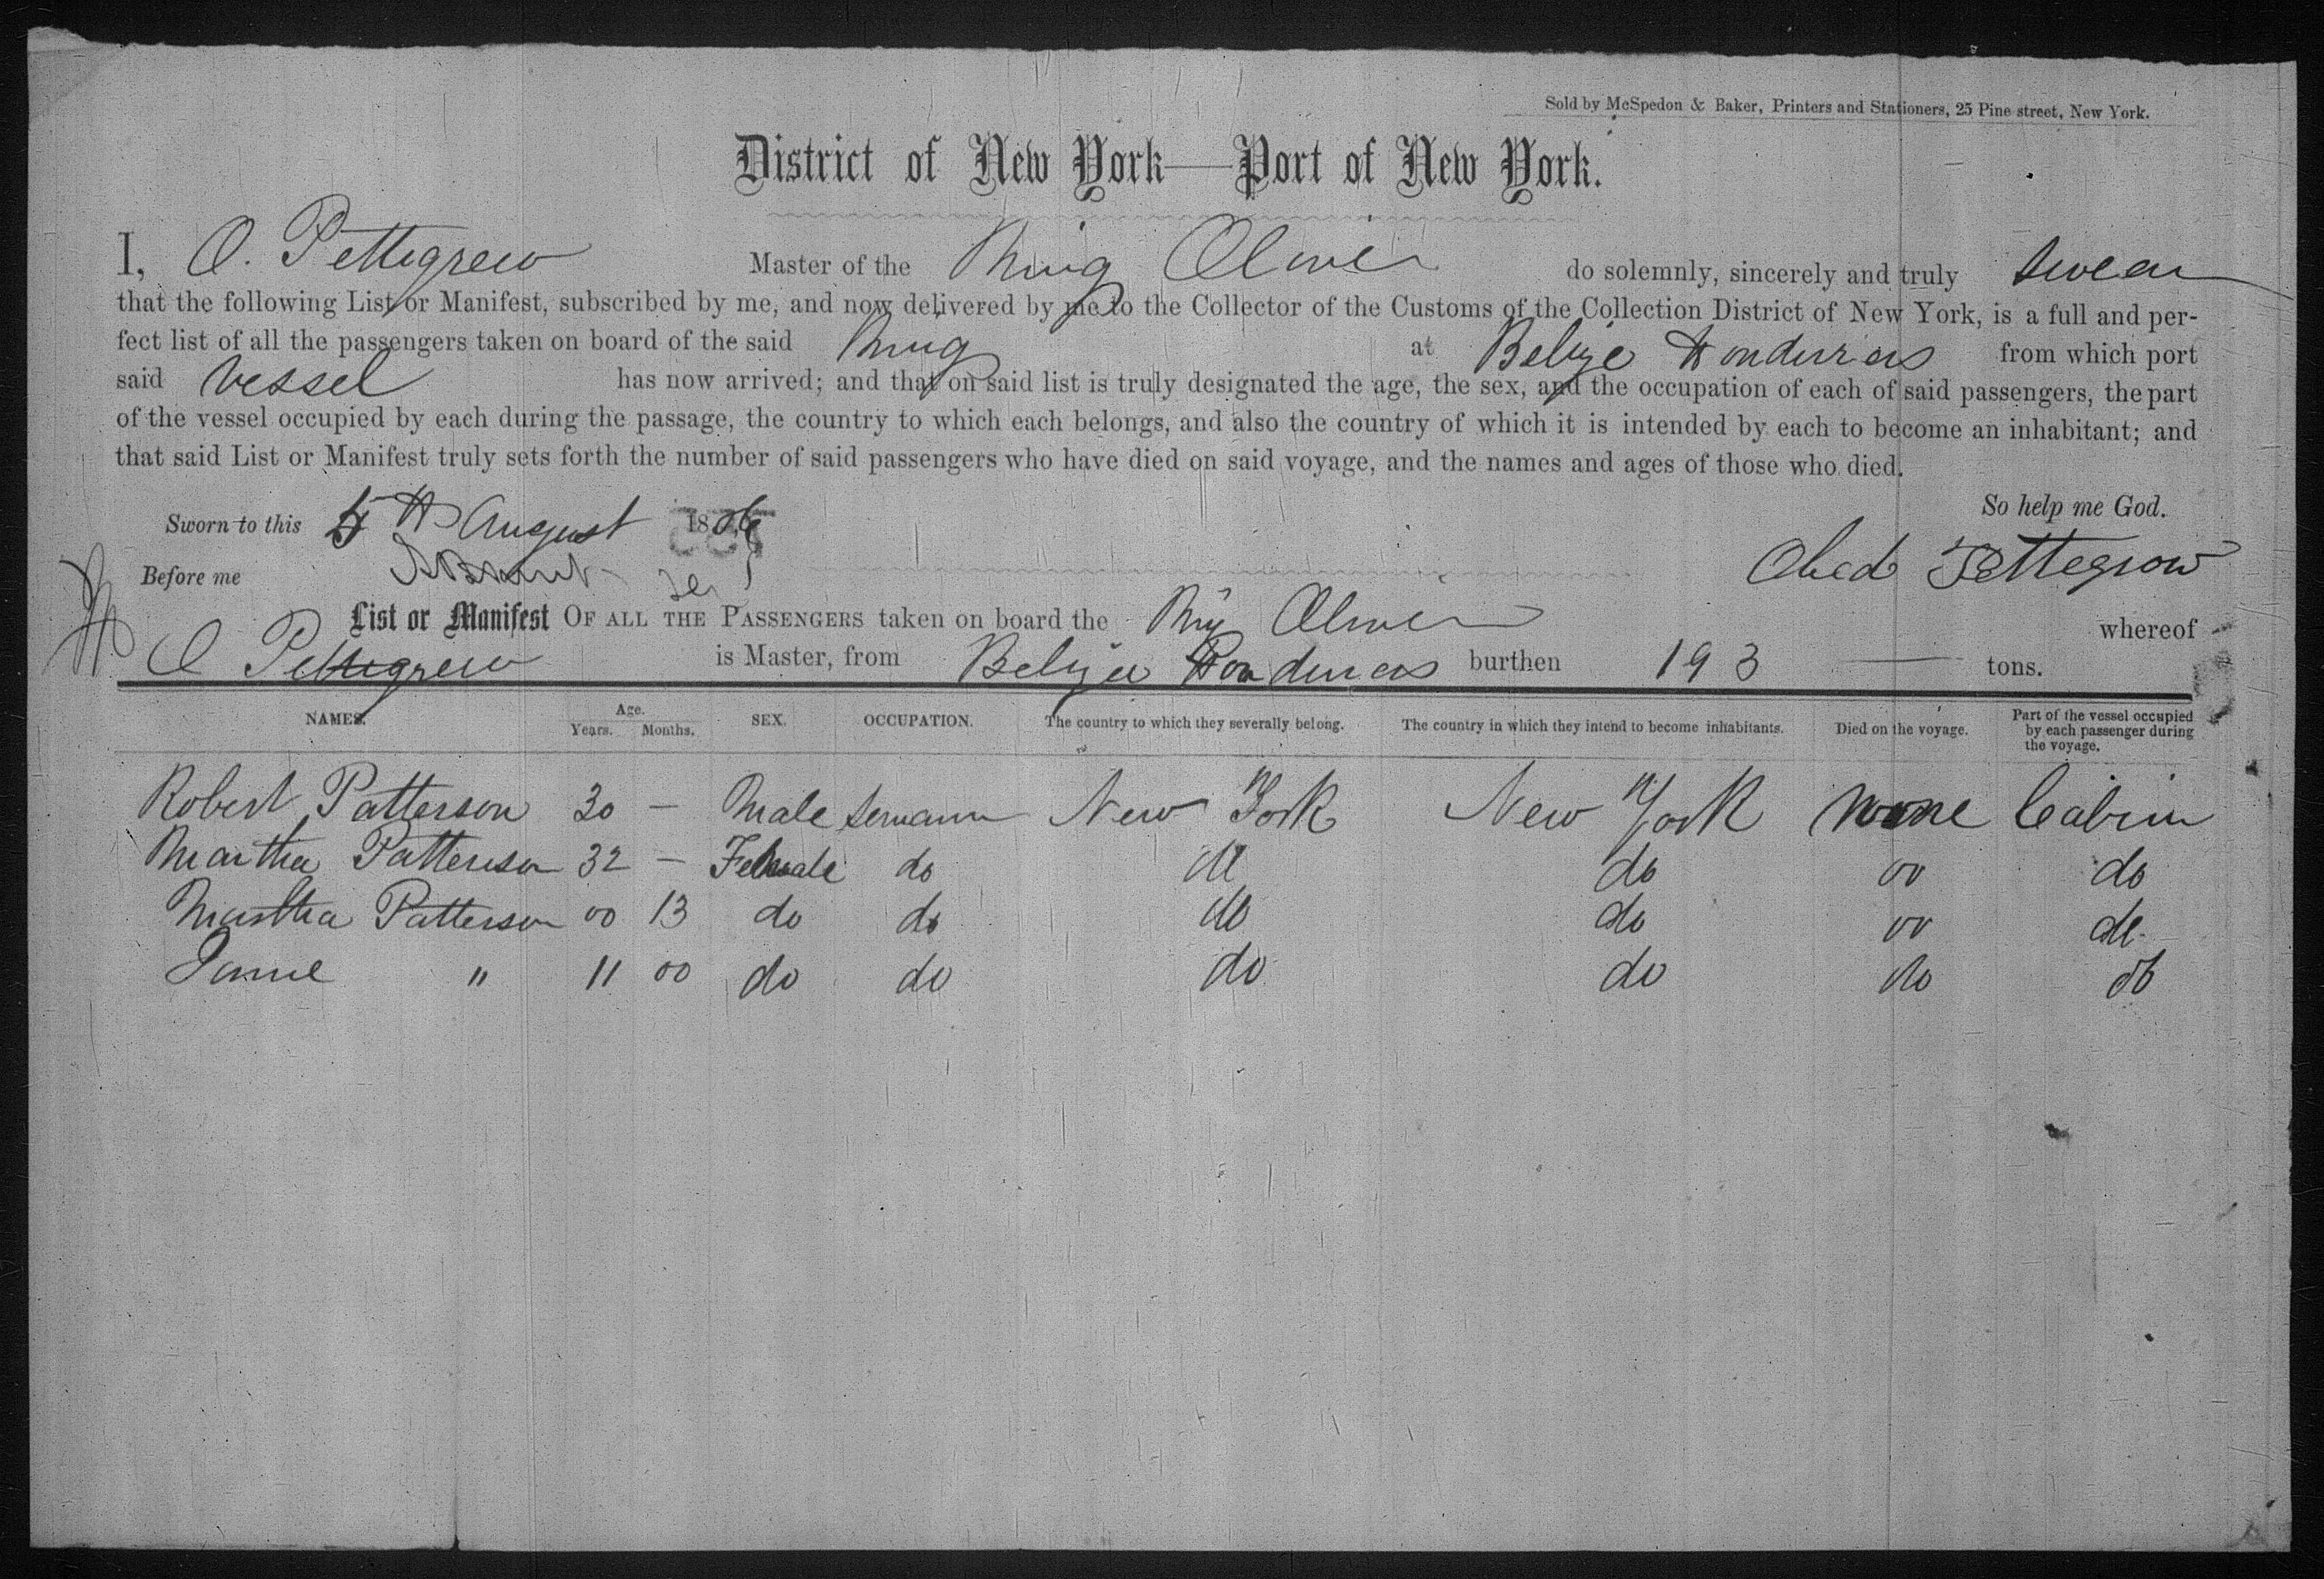 Sold by McSpedon & Baker, Printers and Stationers, 25 Pine street, New York.
District of New York—Port of New York.
I, O. Pettigrew Master of the Brig do solemnly, sincerely and truly swear
that the following List or Manifest, subscribed by me, and now delivered by me to the Collector of the Customs of the Collection District of New York, is a full and per-
fect list of all the passengers taken on board of the said Brig at Belize Honduras from which port
said vessel has now arrived; and that on said list is truly designated the age, the sex, and the occupation of each of said passengers, the part
of the vessel occupied by each during the passage, the country to which each belongs, and also the country of which it is intended by each to become an inhabitant; and
that said List or Manifest truly sets forth the number of said passengers who have died on said voyage, and the names and ages of those who died.
So help me God.
Sworn to this 5th August 18
Before me
Obed Pettegrow
List or Manifest OF ALL THE PASSENGERS taken on board the Brig whereof
O Pettigrew is Master, from Belize Honduras burthen 193 tons.
NAMES. Age. Years. Months. SEX. OCCUPATION. The country to which they severally belong. The country in which they intend to become inhabitants. Died on the voyage. Part of the vessel occupied by each passenger during the voyage.
Robert Patterson 30 — Male New York New York None Cabin
Martha Patterson 32 — Female do do do oo do
Martha Patterson 00 13 do do do do oo do
" 11 00 do do do do do do